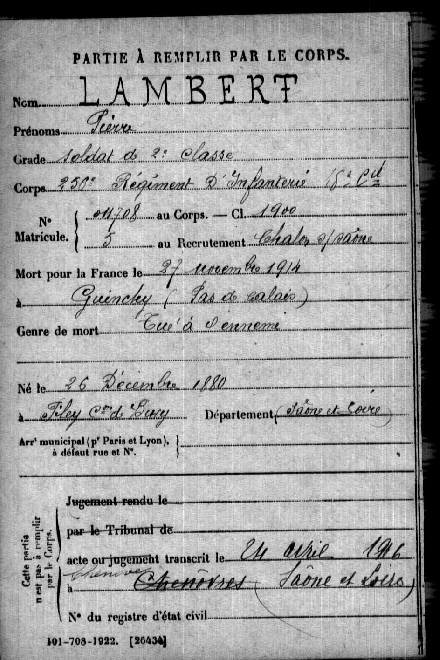 PARTIE À REMPLIR PAR LE CORPS.
Nom LAMBERT
Prénoms Pierre
Grade soldat de 2e classe
Corps 256e Régiment D'Infanterie 18e Cie
N° Matricule. { 04708 au Corps. — Cl. 1900
5 au Recrutement Chalon s/Saône
Mort pour la France le 27 novembre 1914
à Guinchy (Pas de Calais)
Genre de mort Tué à l'ennemi
Né le 26 Décembre 1880
à Fley Con de Buxy Département (Saône et Loire)
Arrt municipal (pr Paris et Lyon), à défaut rue et N°.
Cette partie n'est pas à remplir par le Corps.
Jugement rendu le
par le Tribunal de
acte ou jugement transcrit le 24 avril 1916
à Chenôvres (Saône et Loire)
N° du registre d'état civil
101-708-1922. [26434]